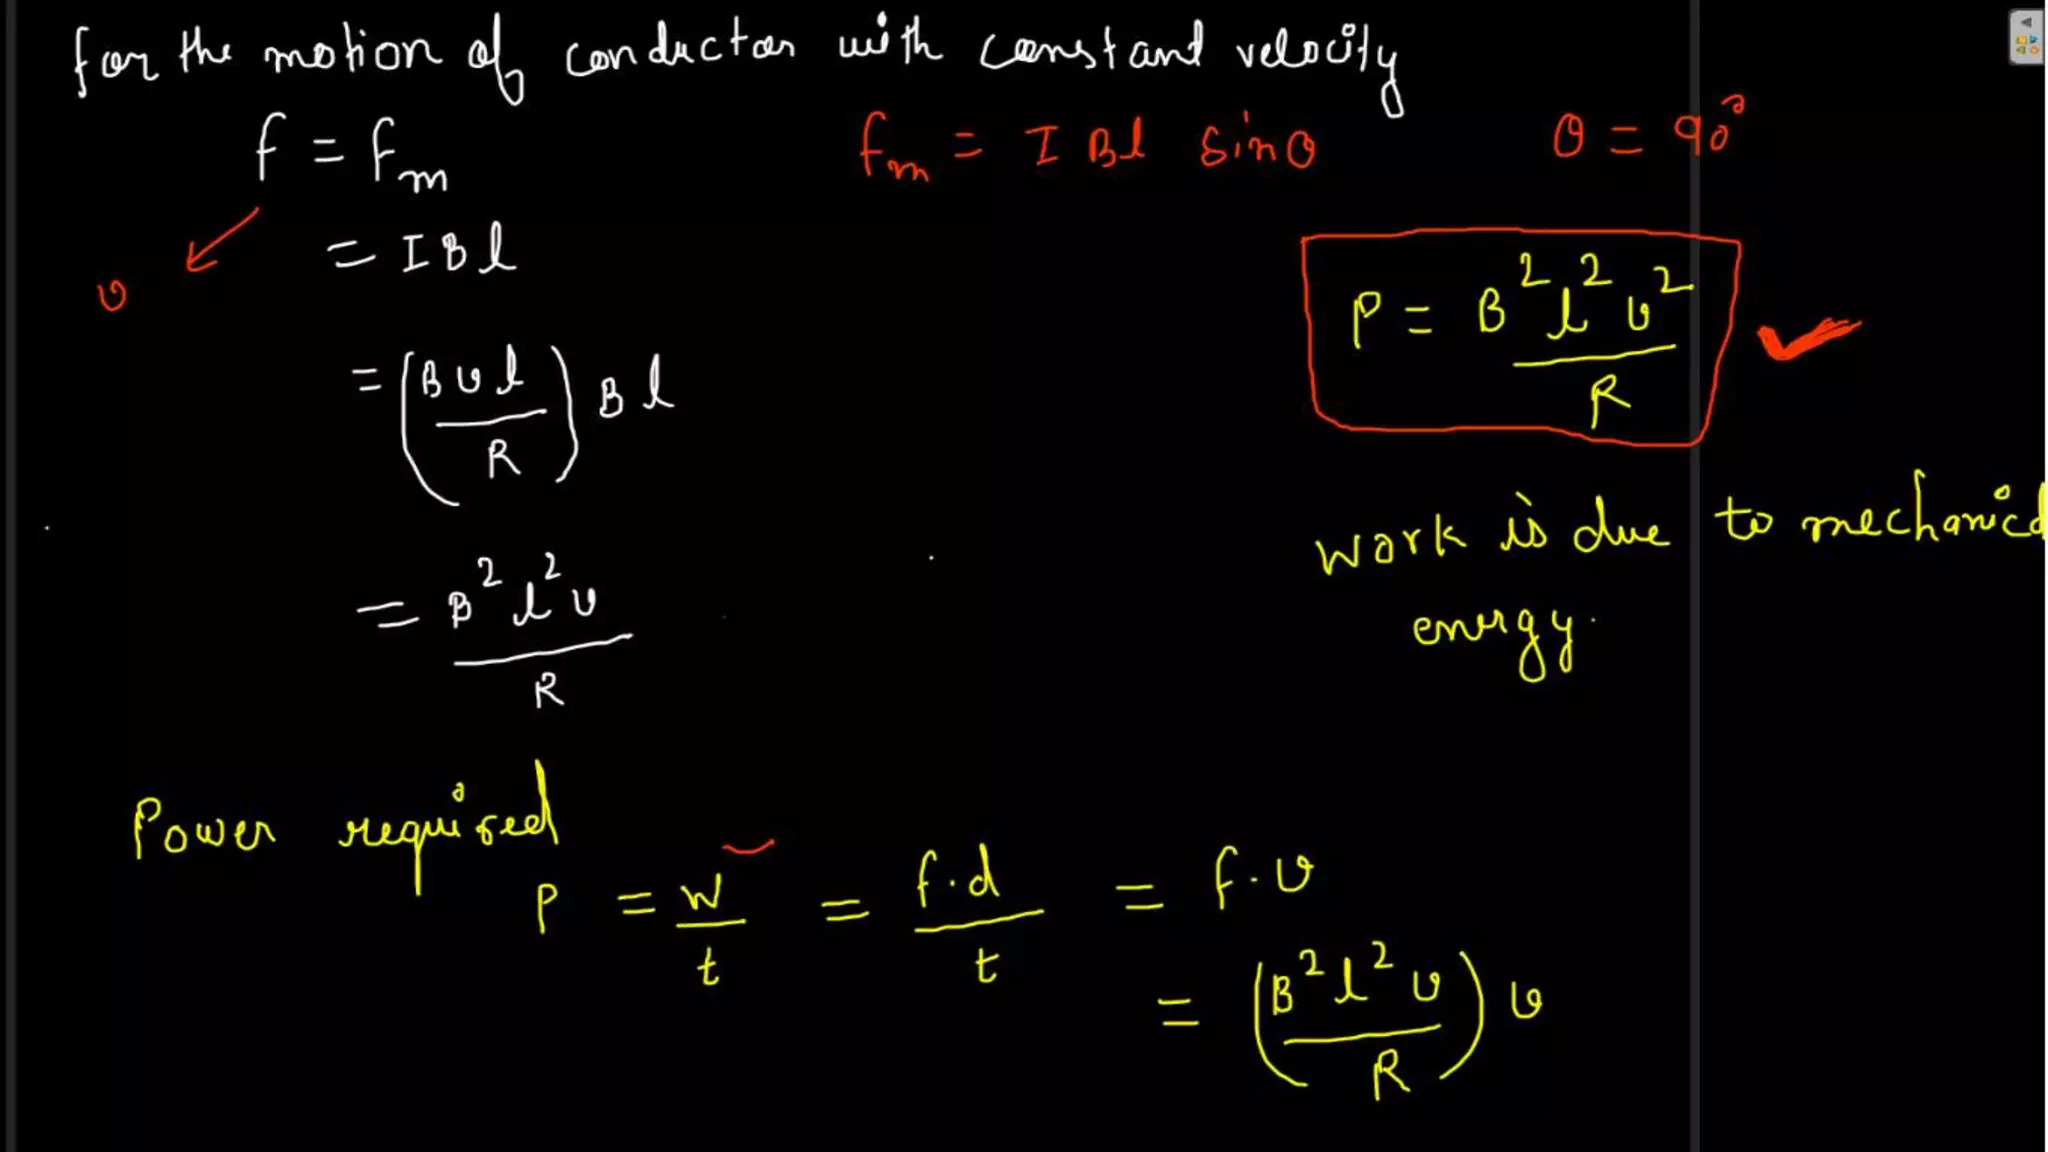 for the motion of conductor with constant velocity
f = fm
fm = I Bl sinθ
θ = 90°
= I B l
v
P = B²l²v² / R
= (Bvl / R) Bl
work is due to mechanical
energy.
= B²l²v / R
Power required
P = W/t = f.d/t = f.v
= (B²l²v / R) v